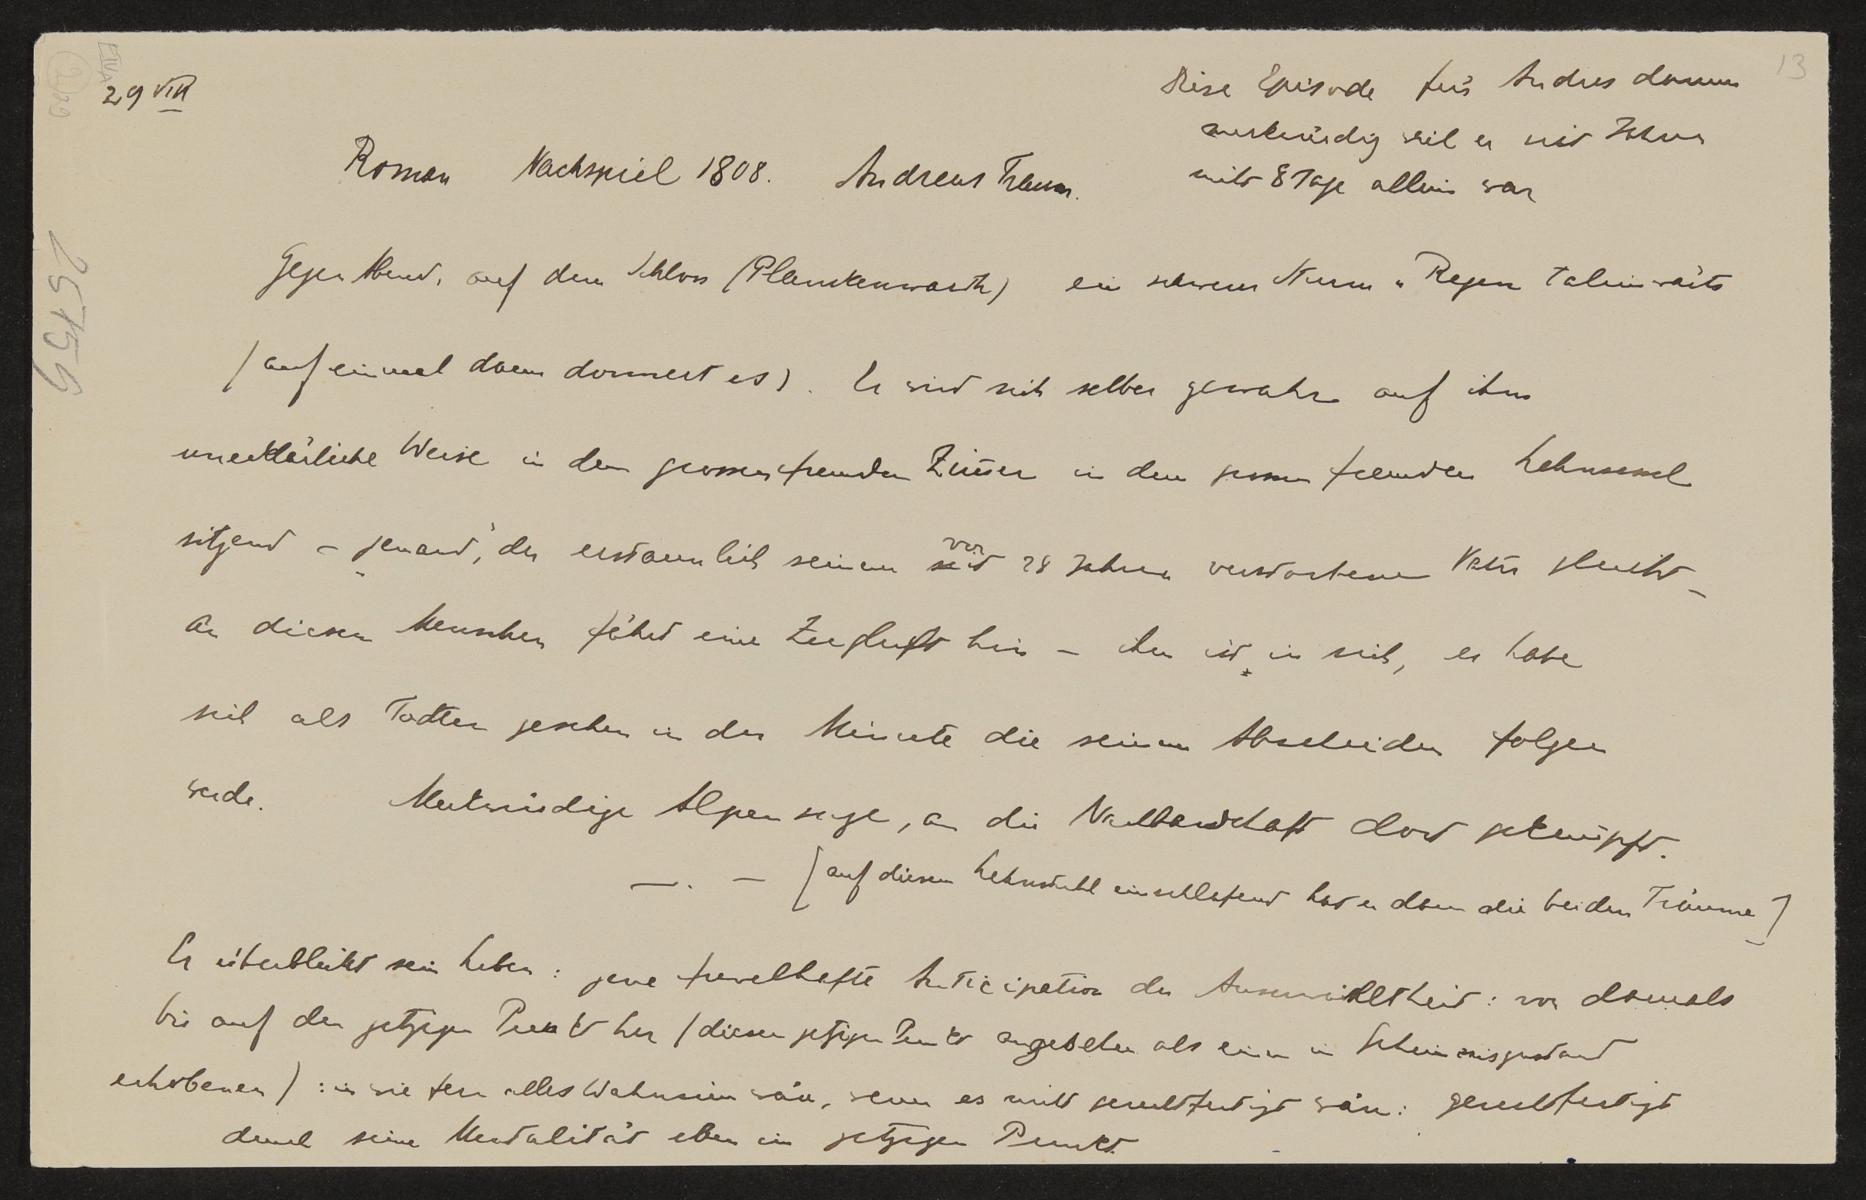 29 VIII
13
Diese Episode für Andres darum
merkwürdig weil er seit Jahren
nicht 8 Tage allein war
Roman Nachspiel 1808. Andreas Traum.
Gegen Abend. auf dem Schloss (Plankenwarth) ein schwerer Sturm u Regen taleinwärts
(auf einmal dann donnert es). Er wird sich selber gewahr auf ihm
unerklärliche Weise in dem grossen fremden Zimmer in dem grossen fremden Lehnsessel
sitzend – jemand, der erstaunlich seinem vor 28 Jahren verstorbenen Vater gleicht –
an diesen Menschen fährt eine Zugluft hin – ihm ist in sich, er habe
sich als Todten gesehen in der Minute die seinem Abscheiden folgen
werde. Merkwürdige Alpensage, an die Nachbarschaft dort geknüpft.
—. — [auf diesem Lehnstuhl einschlafend hat er dann die beiden Träume]
Er überblickt sein Leben: jene frevelhafte Anticipation der Auserwähltheit: von damals
bis auf den jetzigen Punkt her (diesen jetzigen Punkt angesehen als einen in Geheimniszustand
erhobenen): in wie fern alles Wahnsinn wäre, wenn es nicht gerechtfertigt wäre: gerechtfertigt
durch seine Mentalität eben im jetzigen Punkt.
25159